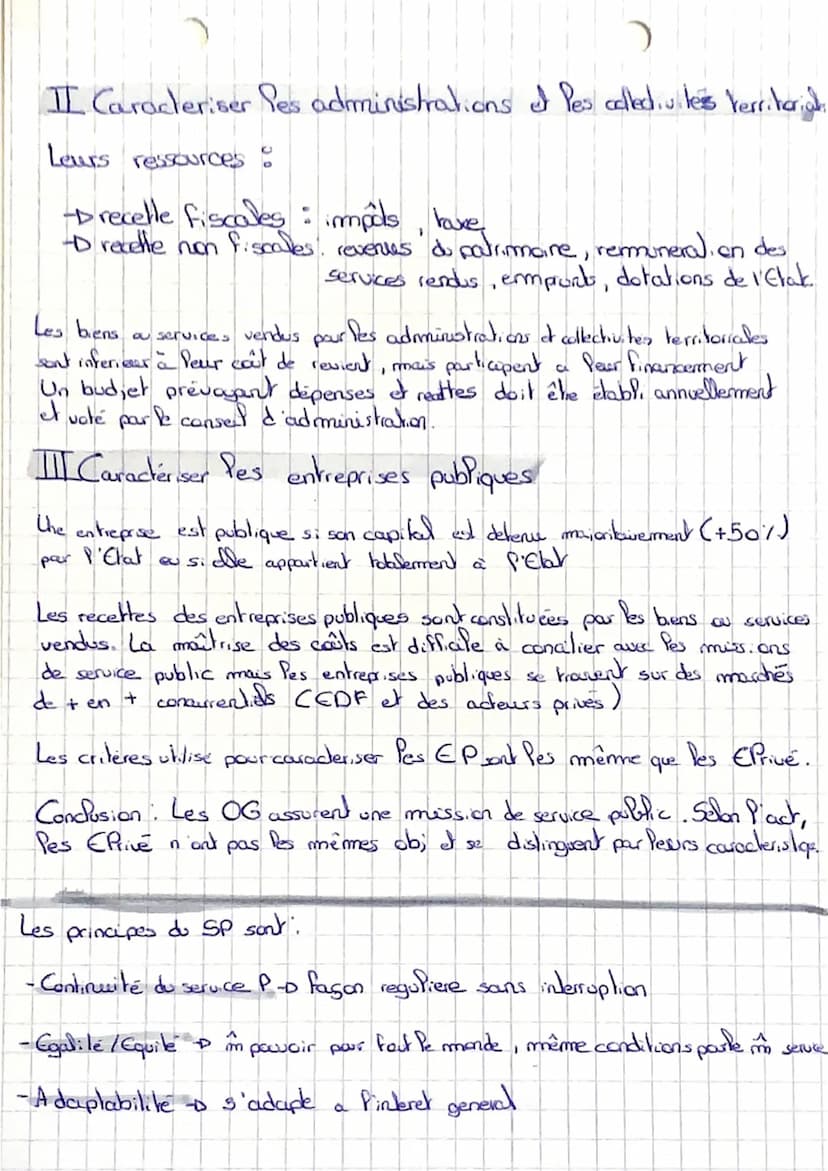 II Caracteriser les administrations et les collectivités territorial
Leurs ressources :
→ recette fiscales : impôts, taxe
→ recette non fiscales : revenus du patrimoine, remuneration des
services rendus, emprunts, dotations de l'Etat.
Les biens ou services vendus par les administrations et collectivites territoriales
sont inferieur à leur coût de revient, mais participent a leur financement
Un budjet prévoyant dépenses et recettes doit être établi annuellement
et voté par le conseil d'administration.
III Caractériser les entreprises publiques
Une entreprise est publique si son capital est detenu majoritairement (+50%)
par l'Etat ou si elle appartient totalement à l'Etat
Les recettes des entreprises publiques sont constituées par les biens ou services
vendus. La maîtrise des coûts est difficile à concilier avec les missions
de service public mais les entreprises publiques se trouvent sur des marchés
de + en + concurrentiels (EDF et des acteurs privés)
Les critères utilisé pour caracteriser les EP sont les même que les EPrivé.
Conclusion : Les OG assurent une mission de service public. Selon l'act,
les EPrivé n'ont pas les mêmes obj et se distinguent par leurs caracteristiqe.
Les principes du SP sont :
- Continuité du service P → façon reguliere sans interruption
- Egalité / Equité → m̂ pouvoir pour tout le monde, même conditions pour le m̂ service
- Adaptabilité → s'adapte a l'interet general